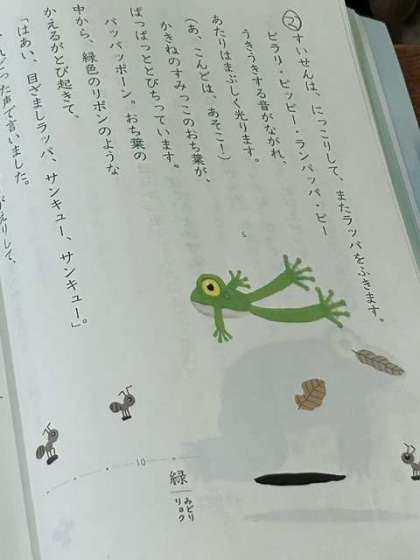 ②
すいせんは、にっこりして、またラッパをふきます。
ピラリ・ピッピー・ランパッパ・ピー
うきうきする音がながれ、
あたりはまぶしく光ります。
(あ、こんどは、あそこ―)
かきねのすみっこのおち葉が、
ぱっぱっととびちっています。
パッパッポーン。おち葉の
中から、緑色のリボンのような
かえるがとび起きて、
「はあい、目ざましラッパ、サンキュー、サンキュー」。
声で言いました。
5
10
緑
みどり
リョク